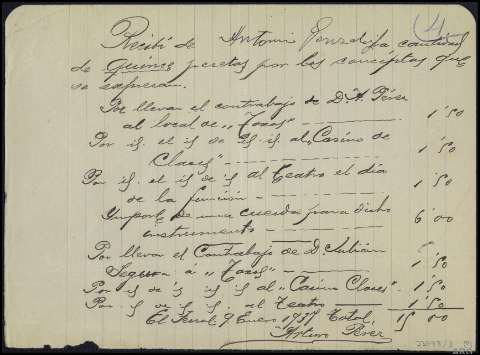 4
Recibí de Antonio la cantidad
de Quince pesetas por los conceptos que
se expresan.
Por llevar el contrabajo de D. A. Pérez
al local de „Tosos" 1'50
Por id. el id de id. id. al „Casino de
Clases" 1'50
Por id. el id de id al Teatro el día
de la función 1'50
Importe de una cuerda para dicho
instrumento 6'00
Por llevar el Contrabajo de D. Julián
Segura á „Tosos" 1'50
Por id el id de id al „Casino Clases" 1'50
Por id el id id. al Teatro 1'50
El Ferrol 9 Enero 1937 Total 15 00
Arturo Pérez